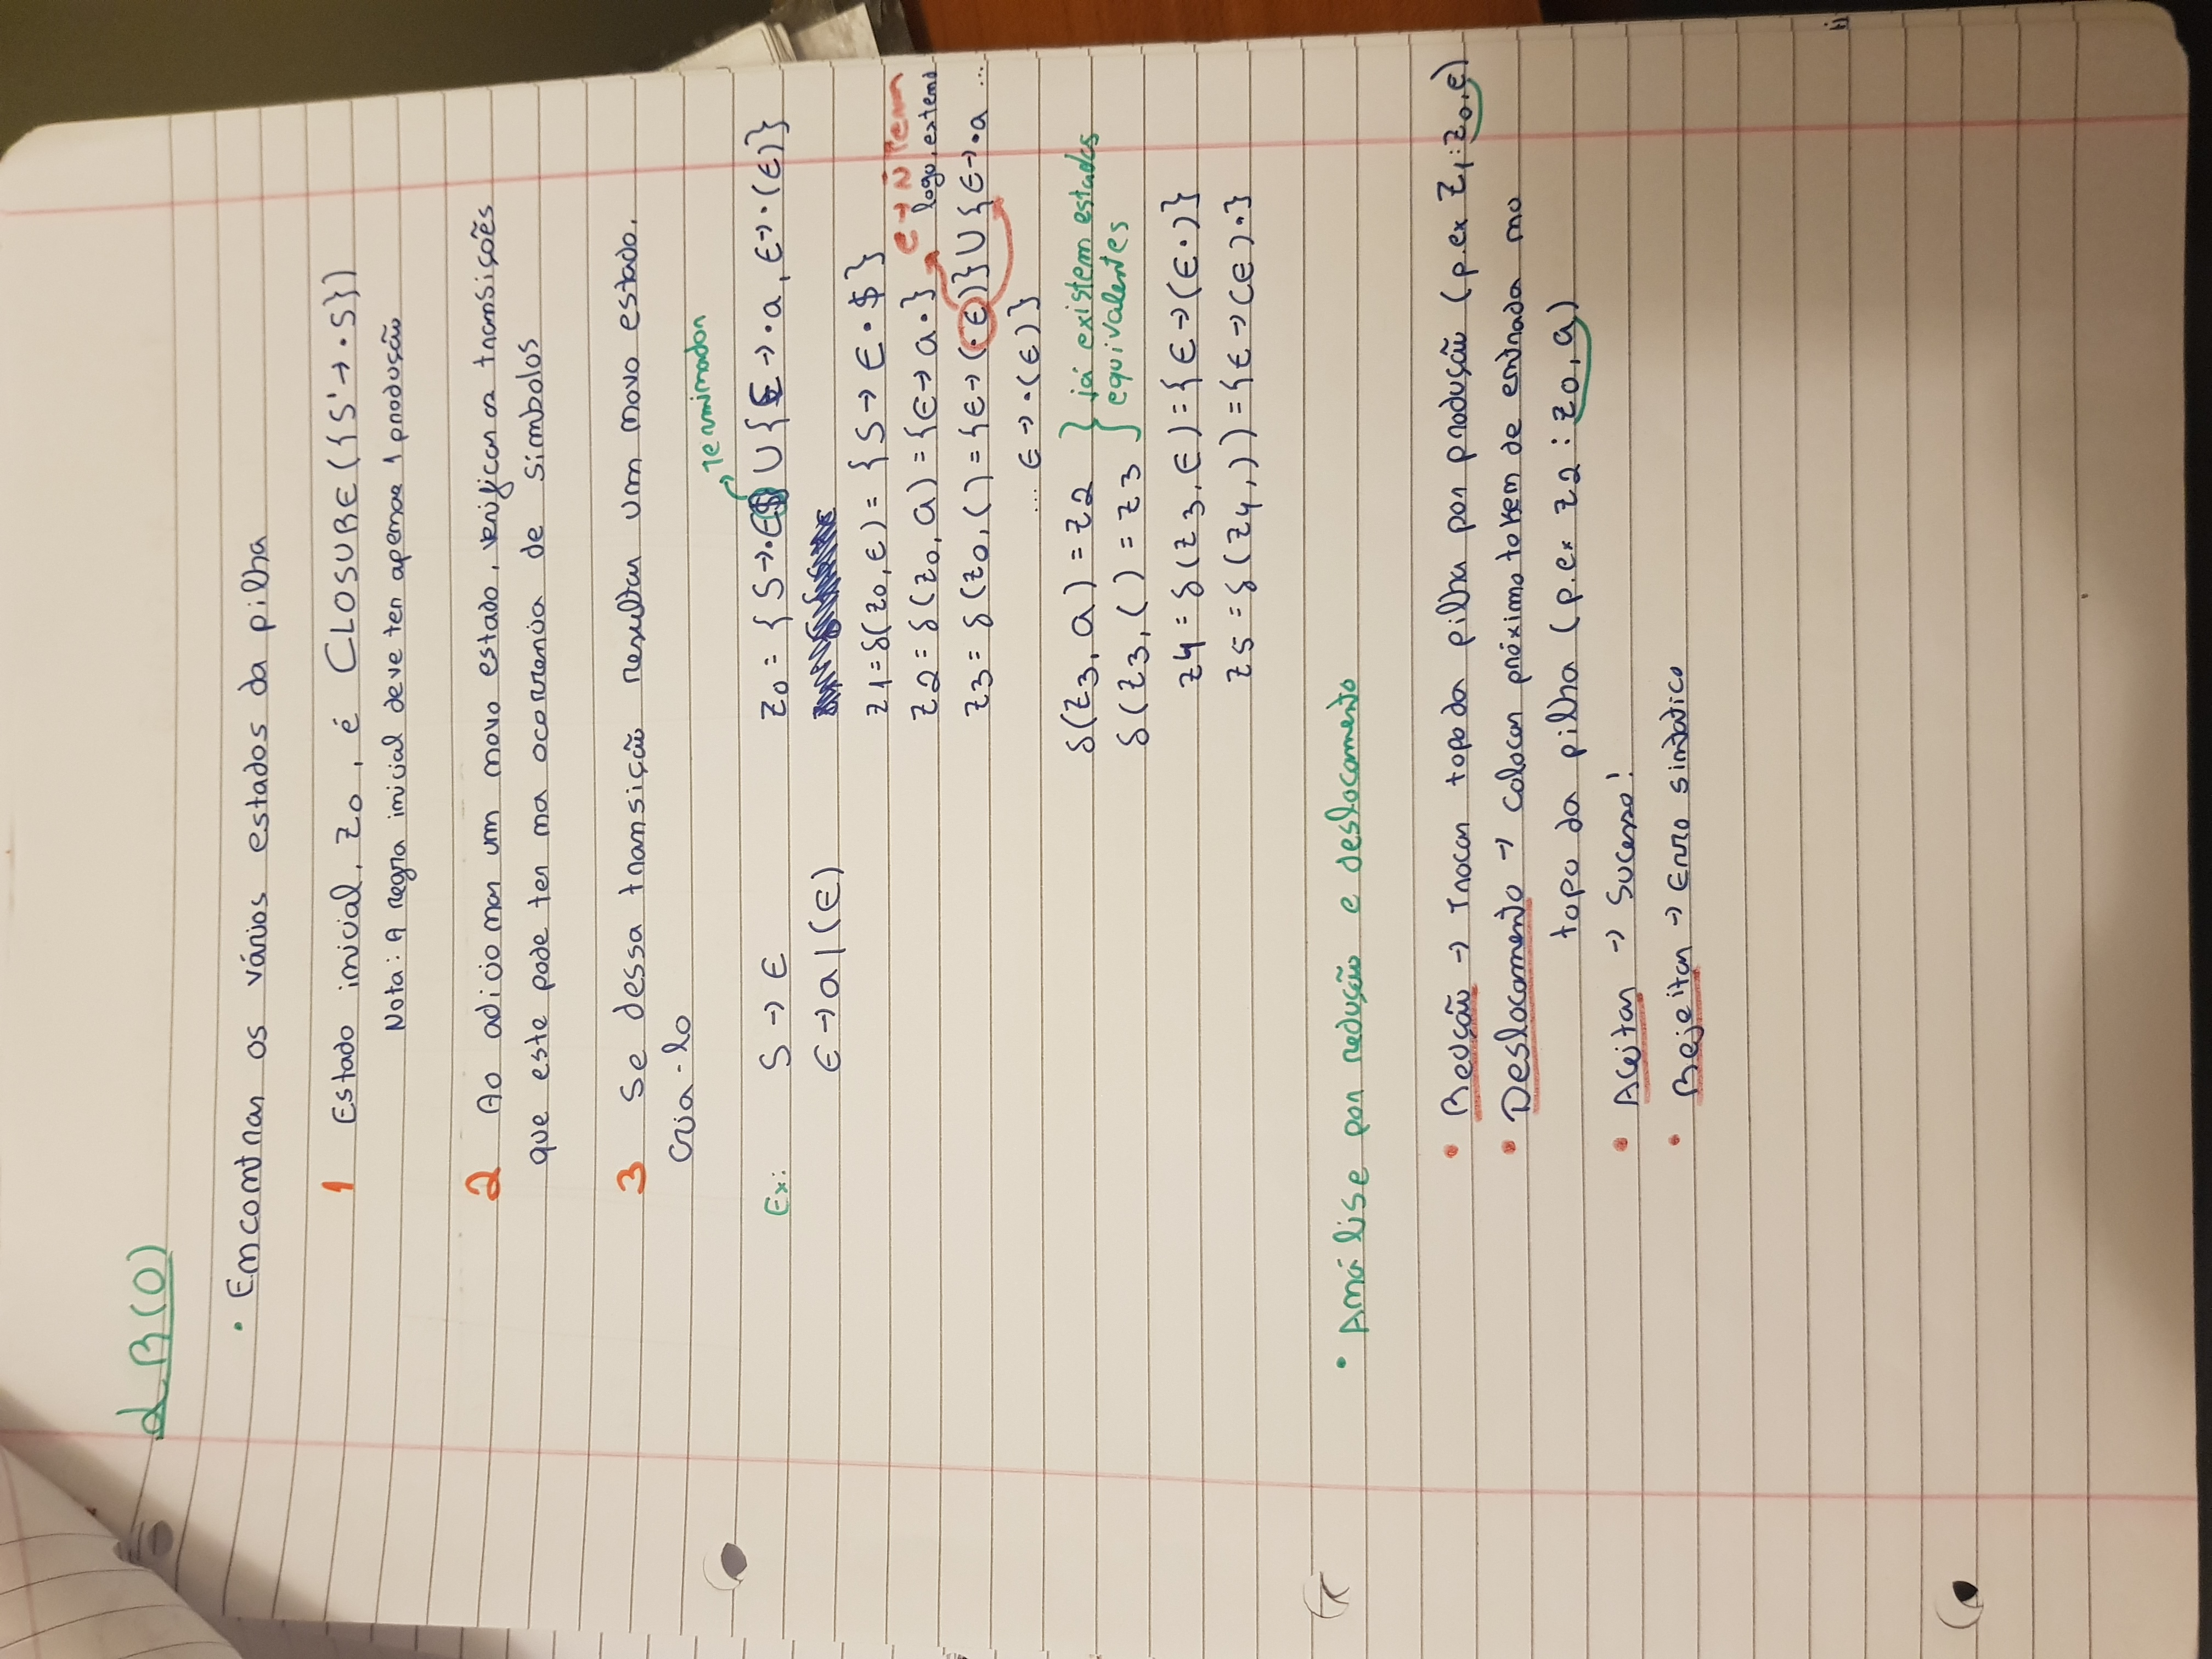 LR(0)
• Encontrar os vários estados da pilha
1 Estado inicial, Z0, é CLOSURE({S'→·S})
Nota: A regra inicial deve ter apenas 1 produção
2 Ao adicionar um novo estado, verificar as transições
que este pode ter na ocorrencia de simbolos
3 Se dessa transição resultar um novo estado,
cria-lo
Terminador
Ex: S → E Z0 = { S→·E$} U {E →·a, E→·(E)}
E → a | (E)
Z1 = δ(Z0, E) = {S → E·$}
Z2 = δ(Z0, a) = {E→ a·} E → Ñ Term
logo, extend
Z3 = δ(Z0, () = {E→ (·E)} U {E→·a ...
... E →·(E)}
δ(Z3, a) = Z2 } já existem estados
δ(Z3, () = Z3 equivalentes
Z4 = δ(Z3, E) = {E→(E·)}
Z5 = δ(Z4, )) = {E→(E)·}
• Análise por redução e deslocamento
• Redção → Trocar topo da pilha por produção (p.ex Z1: Z0, E)
• Deslocamento → Colocar próximo token de entrada no
topo da pilha (p.ex Z2 : Z0, a)
• Aceitar → Sucesso!
• Rejeitar → Erro sintatico